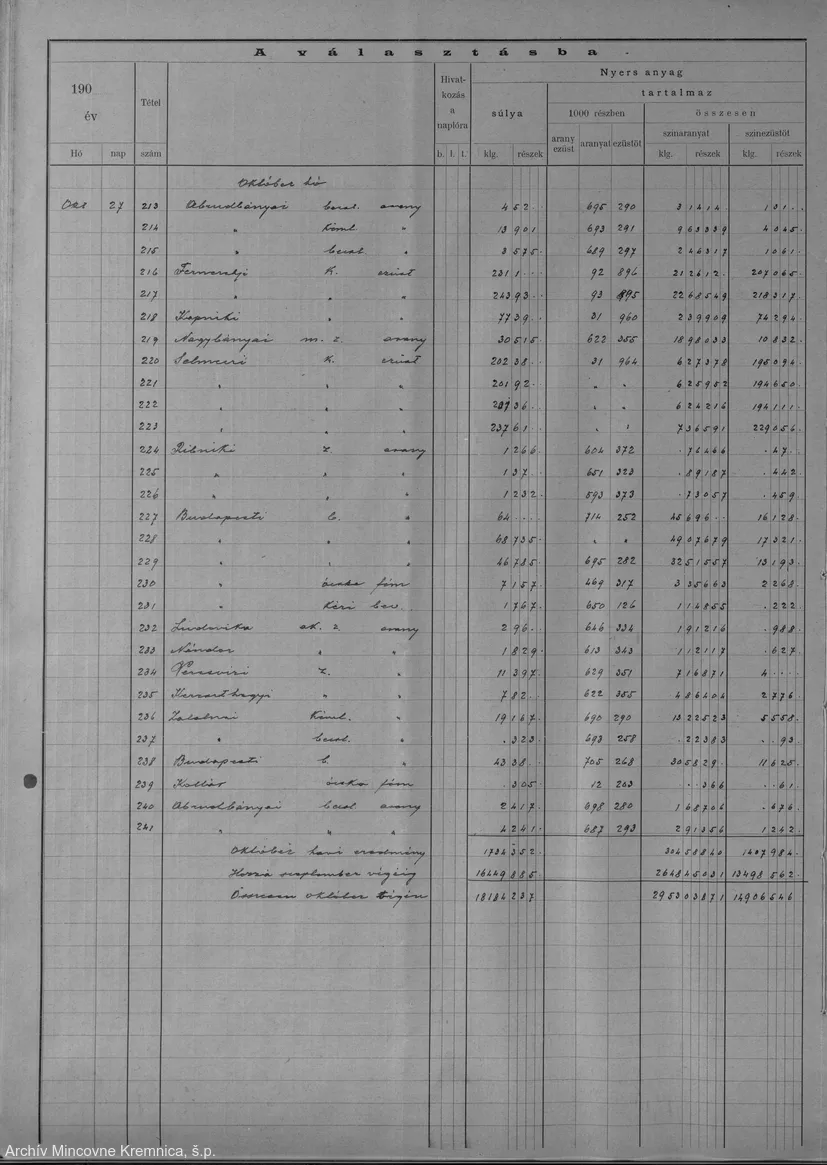 A választásba
190
év
Hó nap
Tétel szám
Hivatkozás a naplóra
b. l. t.
Nyers anyag
súlya
klg. részek
tartalmaz
1000 részben
arany ezüst aranyat ezüstöt
összesen
színaranyat
klg. részek
színezüstöt
klg. részek
Október hó
Okt 27 213 Abrudbányai arany 452 695 290 31414 131
214 " " 13901 693 291 963339 4045
215 " " 3575 689 297 246317 1061
216 K. ezüst 2311 92 896 212612 207065
217 " " " 24393 93 895 2268549 218317
218 Kapniki " " 7739 31 960 239909 74294
219 Nagybányai m. z. arany 30515 622 355 1898033 10832
220 K. ezüst 20238 31 964 627378 195094
221 " " 20192 " " 625952 194650
222 " " 624216 194111
223 " " 23761 " " 736591 229056
224 z. arany 1266 604 372 76466 47
225 " " " 137 651 323 89187 442
226 " " 1232 593 373 73057 459
227 Budapesti b. " 64 714 252 45696 16128
228 " " " 68735 " " 4907679 17321
229 " " " 46785 695 282 3251557 13193
230 " ócska fém 7157 469 317 335663 2268
231 " 1767 650 126 114855 222
232 Ludovika ak. z. arany 296 646 334 191216 988
233 Nándor " " 1829 613 343 112117 627
234 z. " 11397 629 351 716871 4
235 " " 782 622 355 486404 2776
236 Zalatnai " 19167 690 290 1322523 5558
237 " " 323 693 258 22383 93
238 Budapesti b. " 4338 705 268 305829 11625
239 Kollár ócska fém 305 12 203 366 61
240 Abrudbányai arany 2417 698 280 168706 676
241 " " " 4241 687 293 291356 1242
Október havi eredmény 1734352 30458840 1407984
Hozzá szeptember végéig 16449885 264845031 13498562
Összesen október végén 18184237 295303871 14906546
Archív Mincovne Kremnica, š.p.